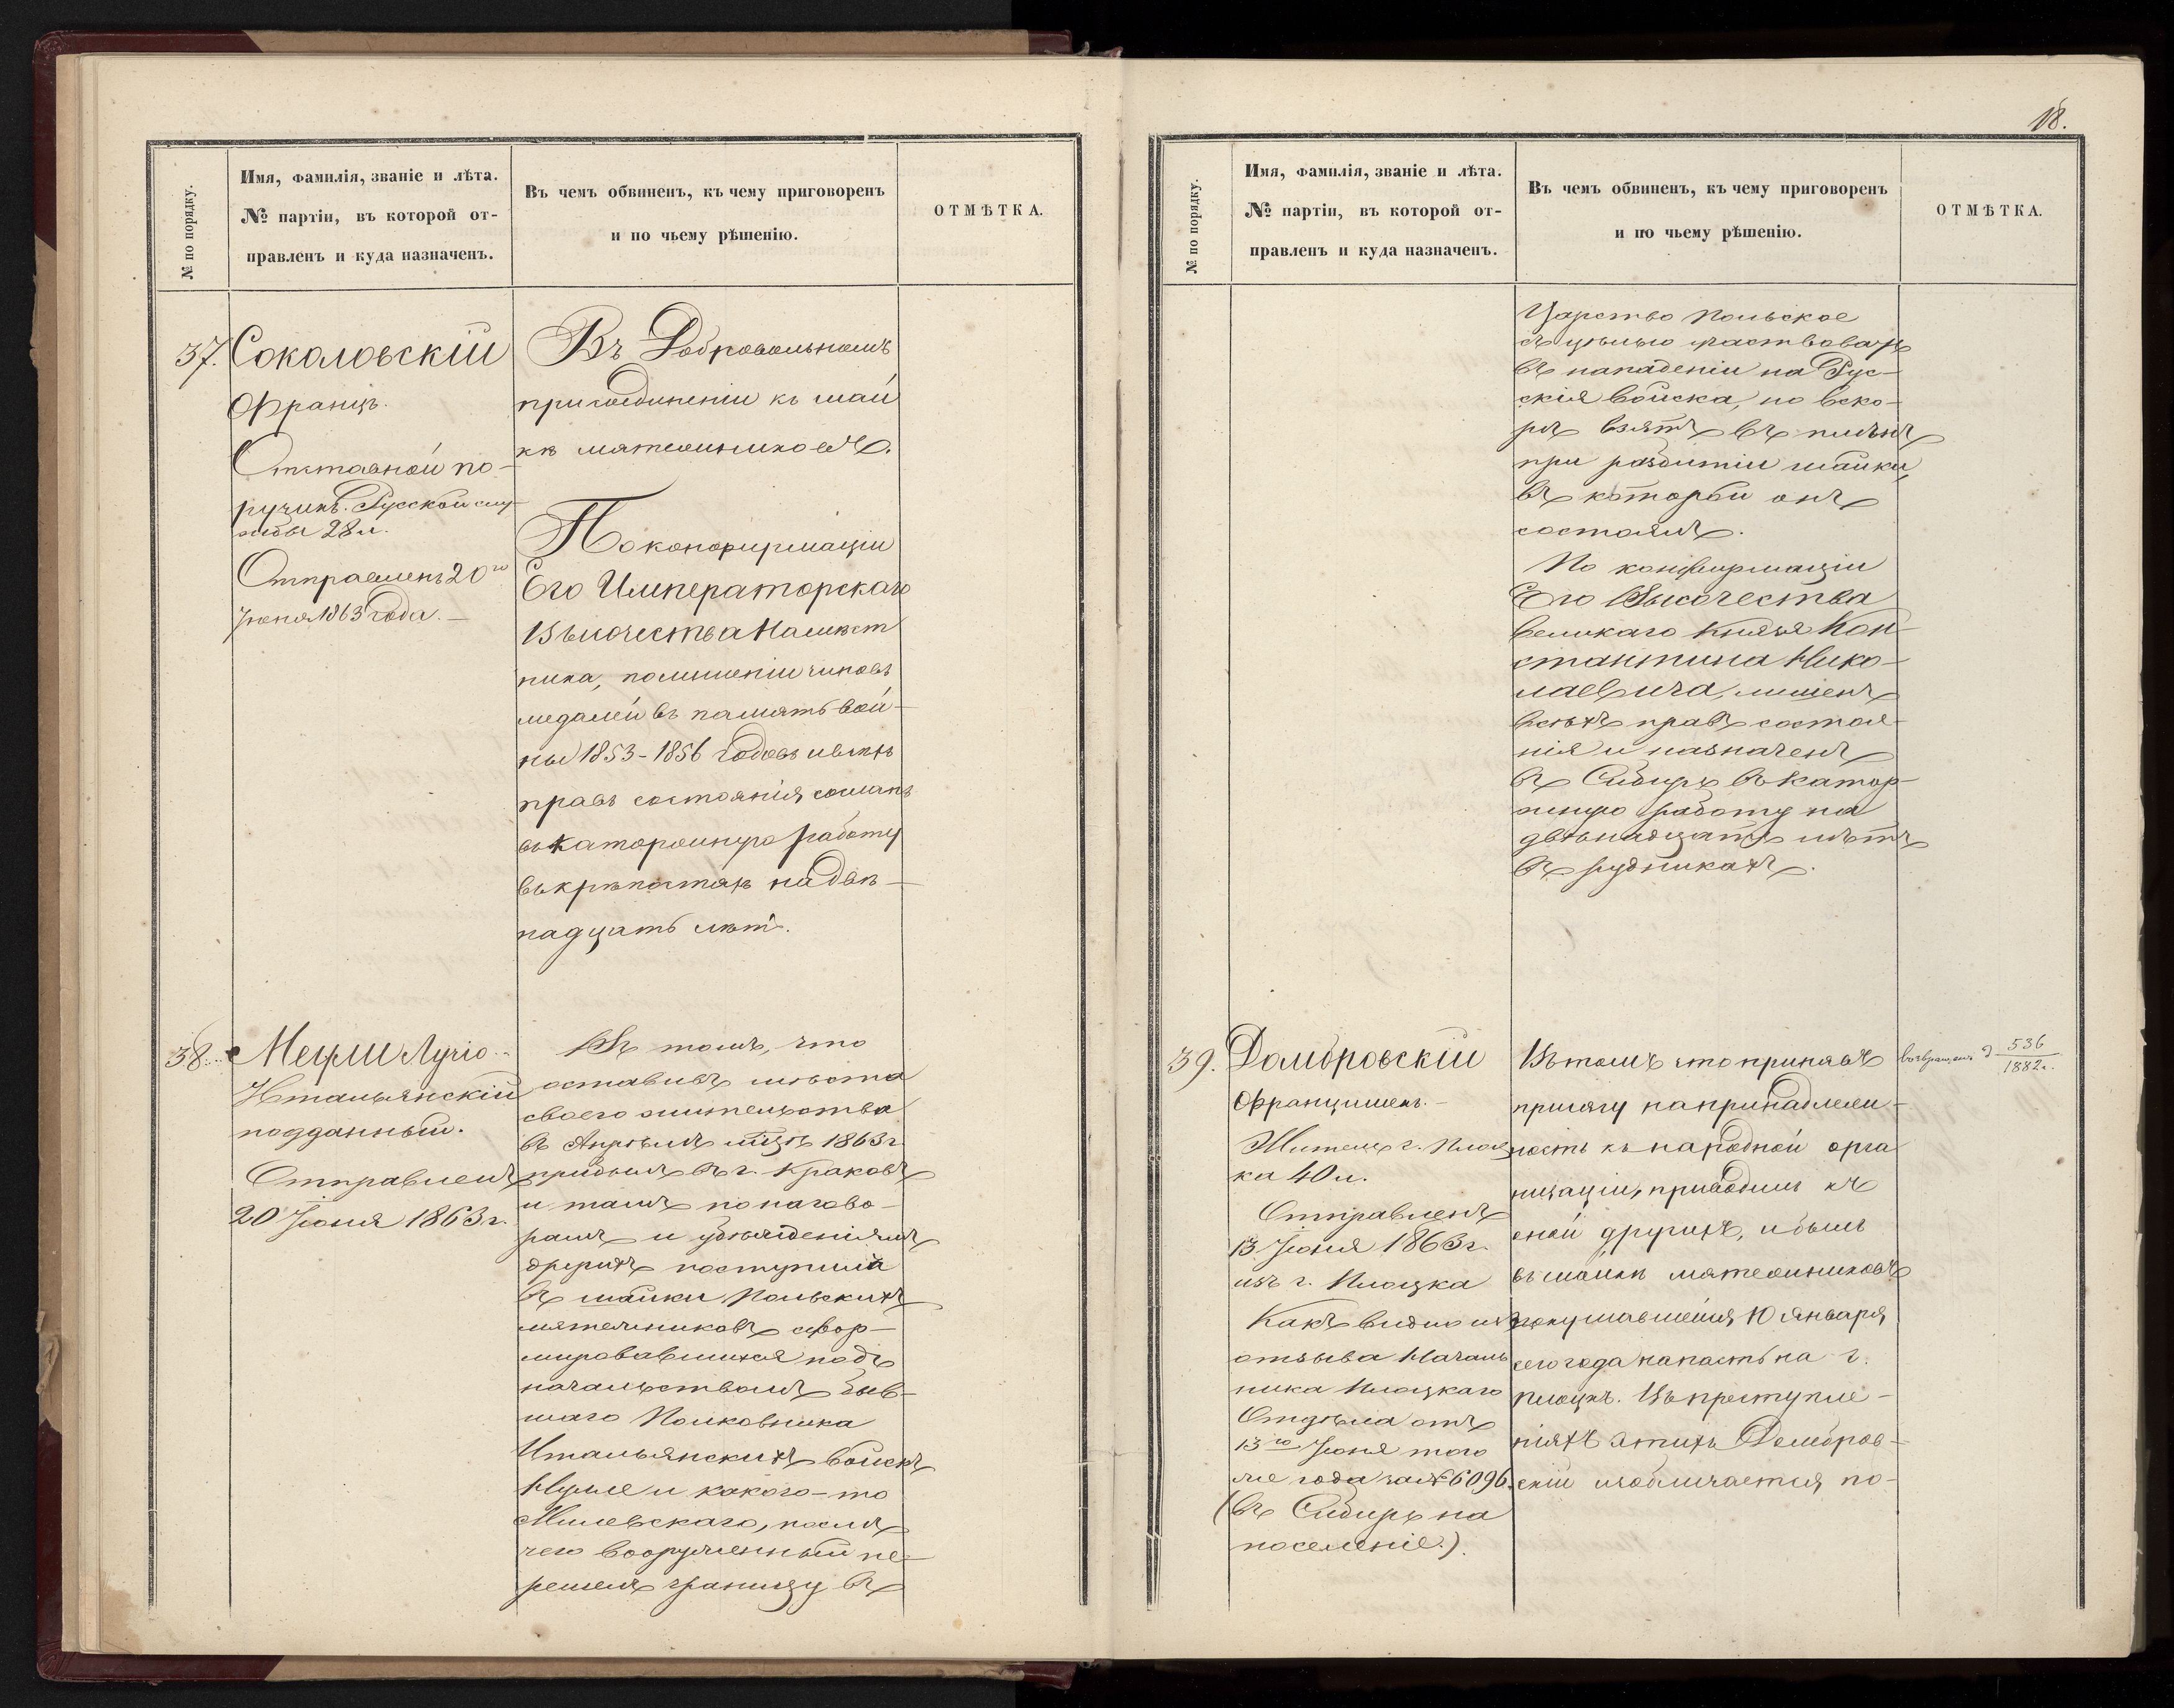 № по порядку.
Имя, фамилія, званіе и лѣта.
№ партіи, въ которой от-
правленъ и куда назначенъ.
Въ чемъ обвиненъ, къ чему приговоренъ
и по чьему рѣшенію.
ОТМѢТКА.
37. Соколовскій
Францъ.
Отставной по-
ручикъ. Русской слу
жбы 28 л.
Отправленъ 20го
Іюня 1863 года.—
Въ Добровольномъ
присоединеніи къ шай
кѣ мятежниковъ.
По конфирмаціи
Его Императорскаго
Высочества Намѣст
ника, по лишеніи чиновъ
медалей въ память вой-
ны 1853-1856 годовъ и всѣхъ
правъ состоянія сосланъ
въ каторжную работу
въ крѣпостяхъ на двѣ-
надцать лѣтъ.
38. Мецли Лучіо
Итальянскій
подданный.
Отправленъ
20 Іюня 1863 г.
Въ томъ, что
оставивъ мѣста
своего жительства
въ Апрѣлѣ мцѣ 1863 г
прибылъ въ г. Краковъ
и тамъ по нагово-
рамъ и убѣжденіямъ
другихъ поступилъ
въ шайки Польскихъ
мятежниковъ сфор-
мировавшихся подъ
начальствомъ быв-
шаго Полковника
Итальянскихъ войскъ
Нулле и какого-то
Милевскаго, послѣ
чего вооруженный пе-
решелъ границу въ
18.
№ по порядку.
Имя, фамилія, званіе и лѣта.
№ партіи, въ которой от-
правленъ и куда назначенъ.
Въ чемъ обвиненъ, къ чему приговоренъ
и по чьему рѣшенію.
ОТМѢТКА.
Царство Польское
съ цѣлью участвовать
въ нападеніи на Рус-
скія войска, но вско-
рѣ взятъ въ плѣнъ
при разбитіи шайки,
въ которой онъ
состоялъ.
По конфирмаціи
Его Высочества
Великаго Князя Кон-
стантина Нико-
лаевича, лишенъ
всѣхъ правъ состоя-
нія и назначенъ
въ Сибирь въ катор-
жную работу на
двѣнадцать лѣтъ
въ рудникахъ.
39. Домбровскій
Францишекъ.—
Житель г. Плоц
ка 40 л.
Отправленъ
13 Іюня 1863 г.
изъ г. Плоцка
Какъ видно изъ
отзыва Началь
ника Плоцкаго
Отдѣла отъ
13го Іюня того
же года за № 6096.
(въ Сибирь на
поселеніе.)
Въ томъ что принявъ
присягу на принадлеж-
ность къ народной орга
низаціи, приводилъ къ
оной другихъ, и былъ
въ шайкѣ мятежниковъ
покушавшейся 10 Января
сего года напасть на г.
Плоцкъ. Въ преступле-
ніяхъ этихъ Домбров-
скій изобличается по-
возвращенъ д 536
1882 г.